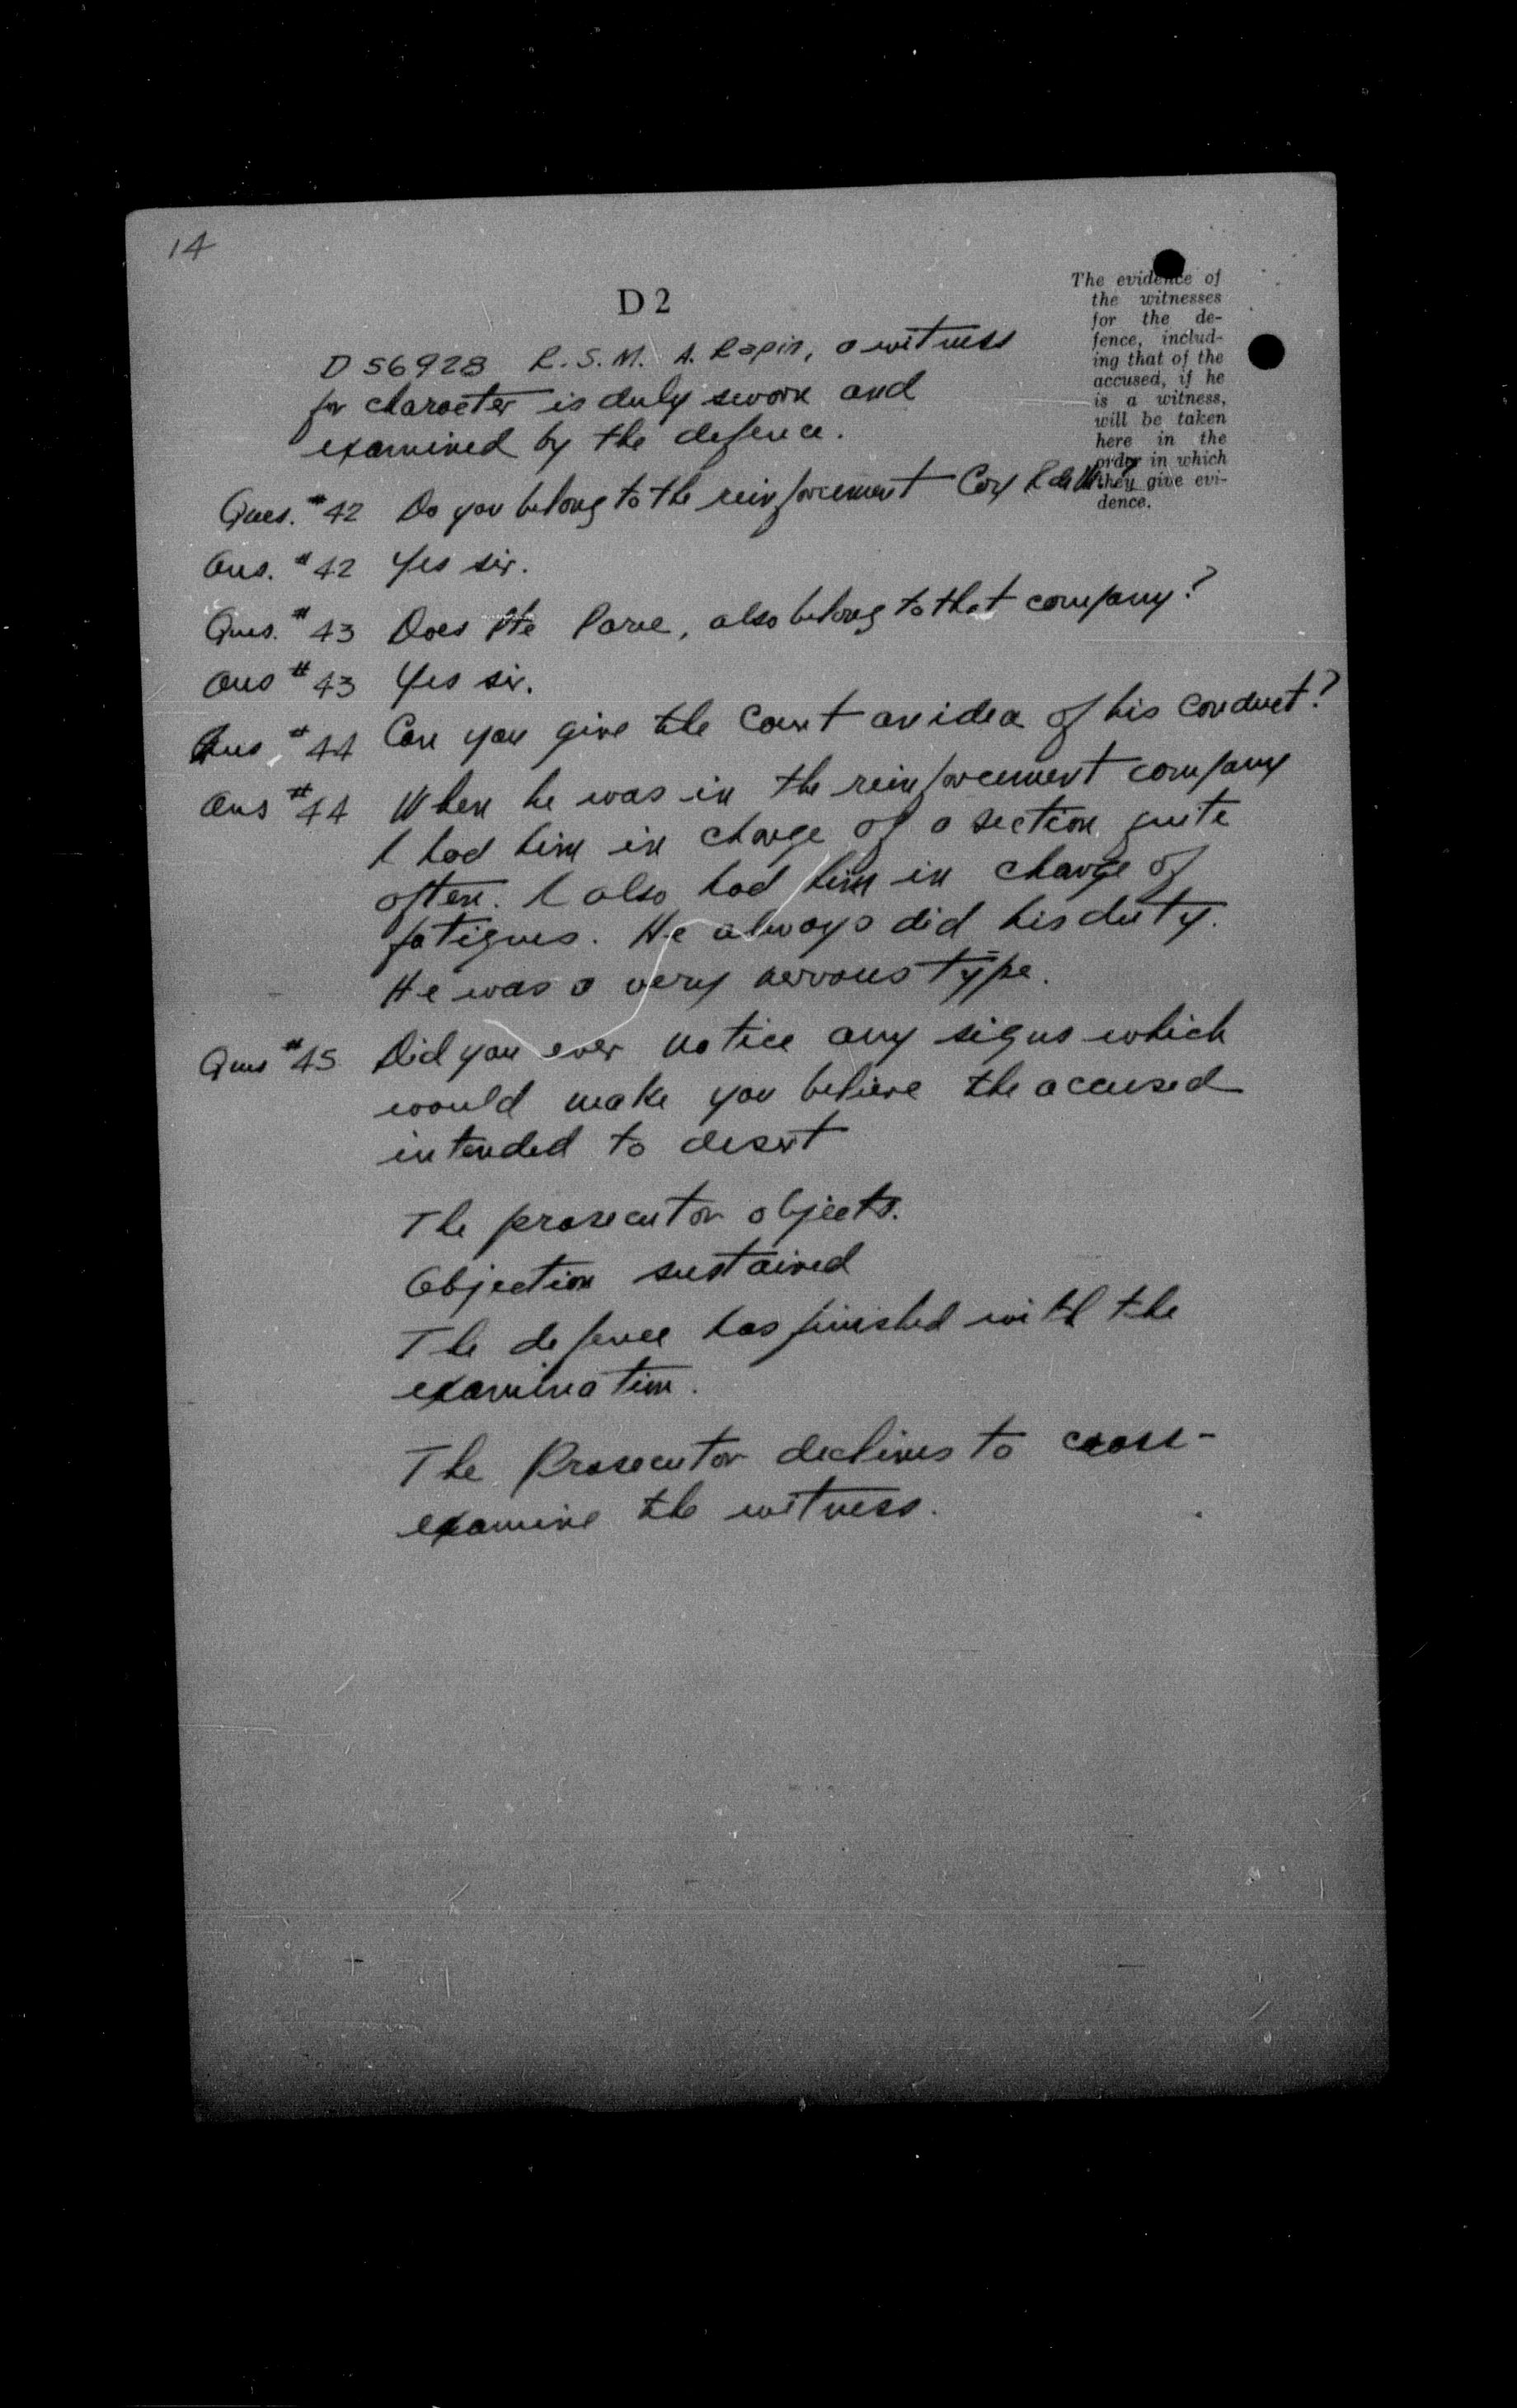 14
D 2
The evidence of
the witnesses
for the de-
fence, includ-
ing that of the
accused, if he
is a witness,
will be taken
here in the
order in which
they give evi-
dence.
D 56928 R.S.M. A. Rapin, a witness
for character is duly sworn and
examined by the defence.
Ques. #42 Do you belong to the reinforcement Coy R de M.?
Ans. #42 Yes sir.
Ques. #43 Does Pte Pare, also belong to that company?
Ans #43 Yes sir.
#44 Can you give the Court an idea of his conduct?
Ans #44 When he was in the reinforcement company
I had him in charge of a section quite
often. I also had him in charge of
fatigues. He always did his duty.
He was a very nervous type.
Ques #45 Did you ever notice any signs which
would make you believe the accused
intended to desert
The prosecutor objects.
Objection sustained
The defence has finished with the
examination.
The Prosecutor declines to cross-
examine the witness.